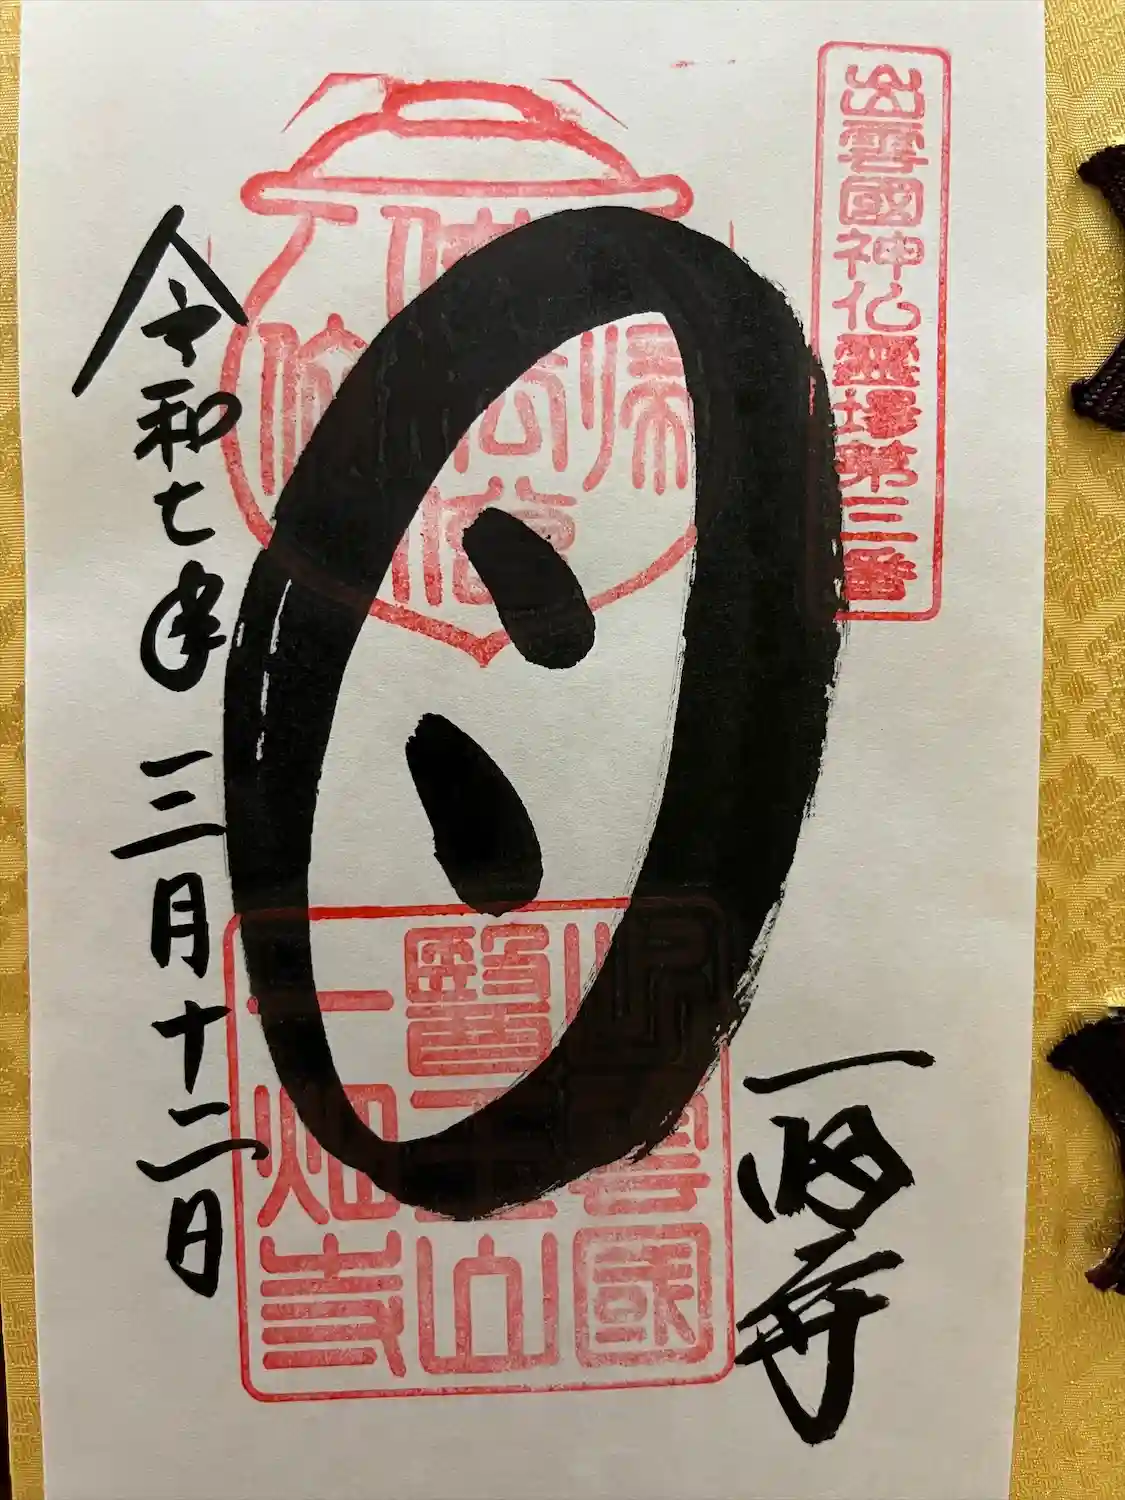 出雲國神仏霊場第三番
一畑寺
目
帰依佛法僧
出雲國
醫王山
一畑寺
令和七年三月十二日